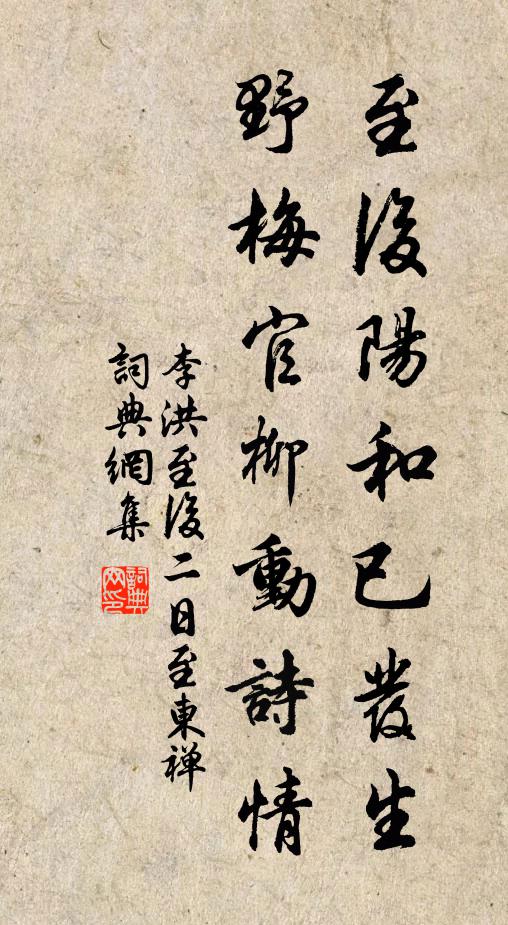 至後陽和已發生
野梅官柳動詩情
李洪至後二日至東禅
詞典網集
詞典網印